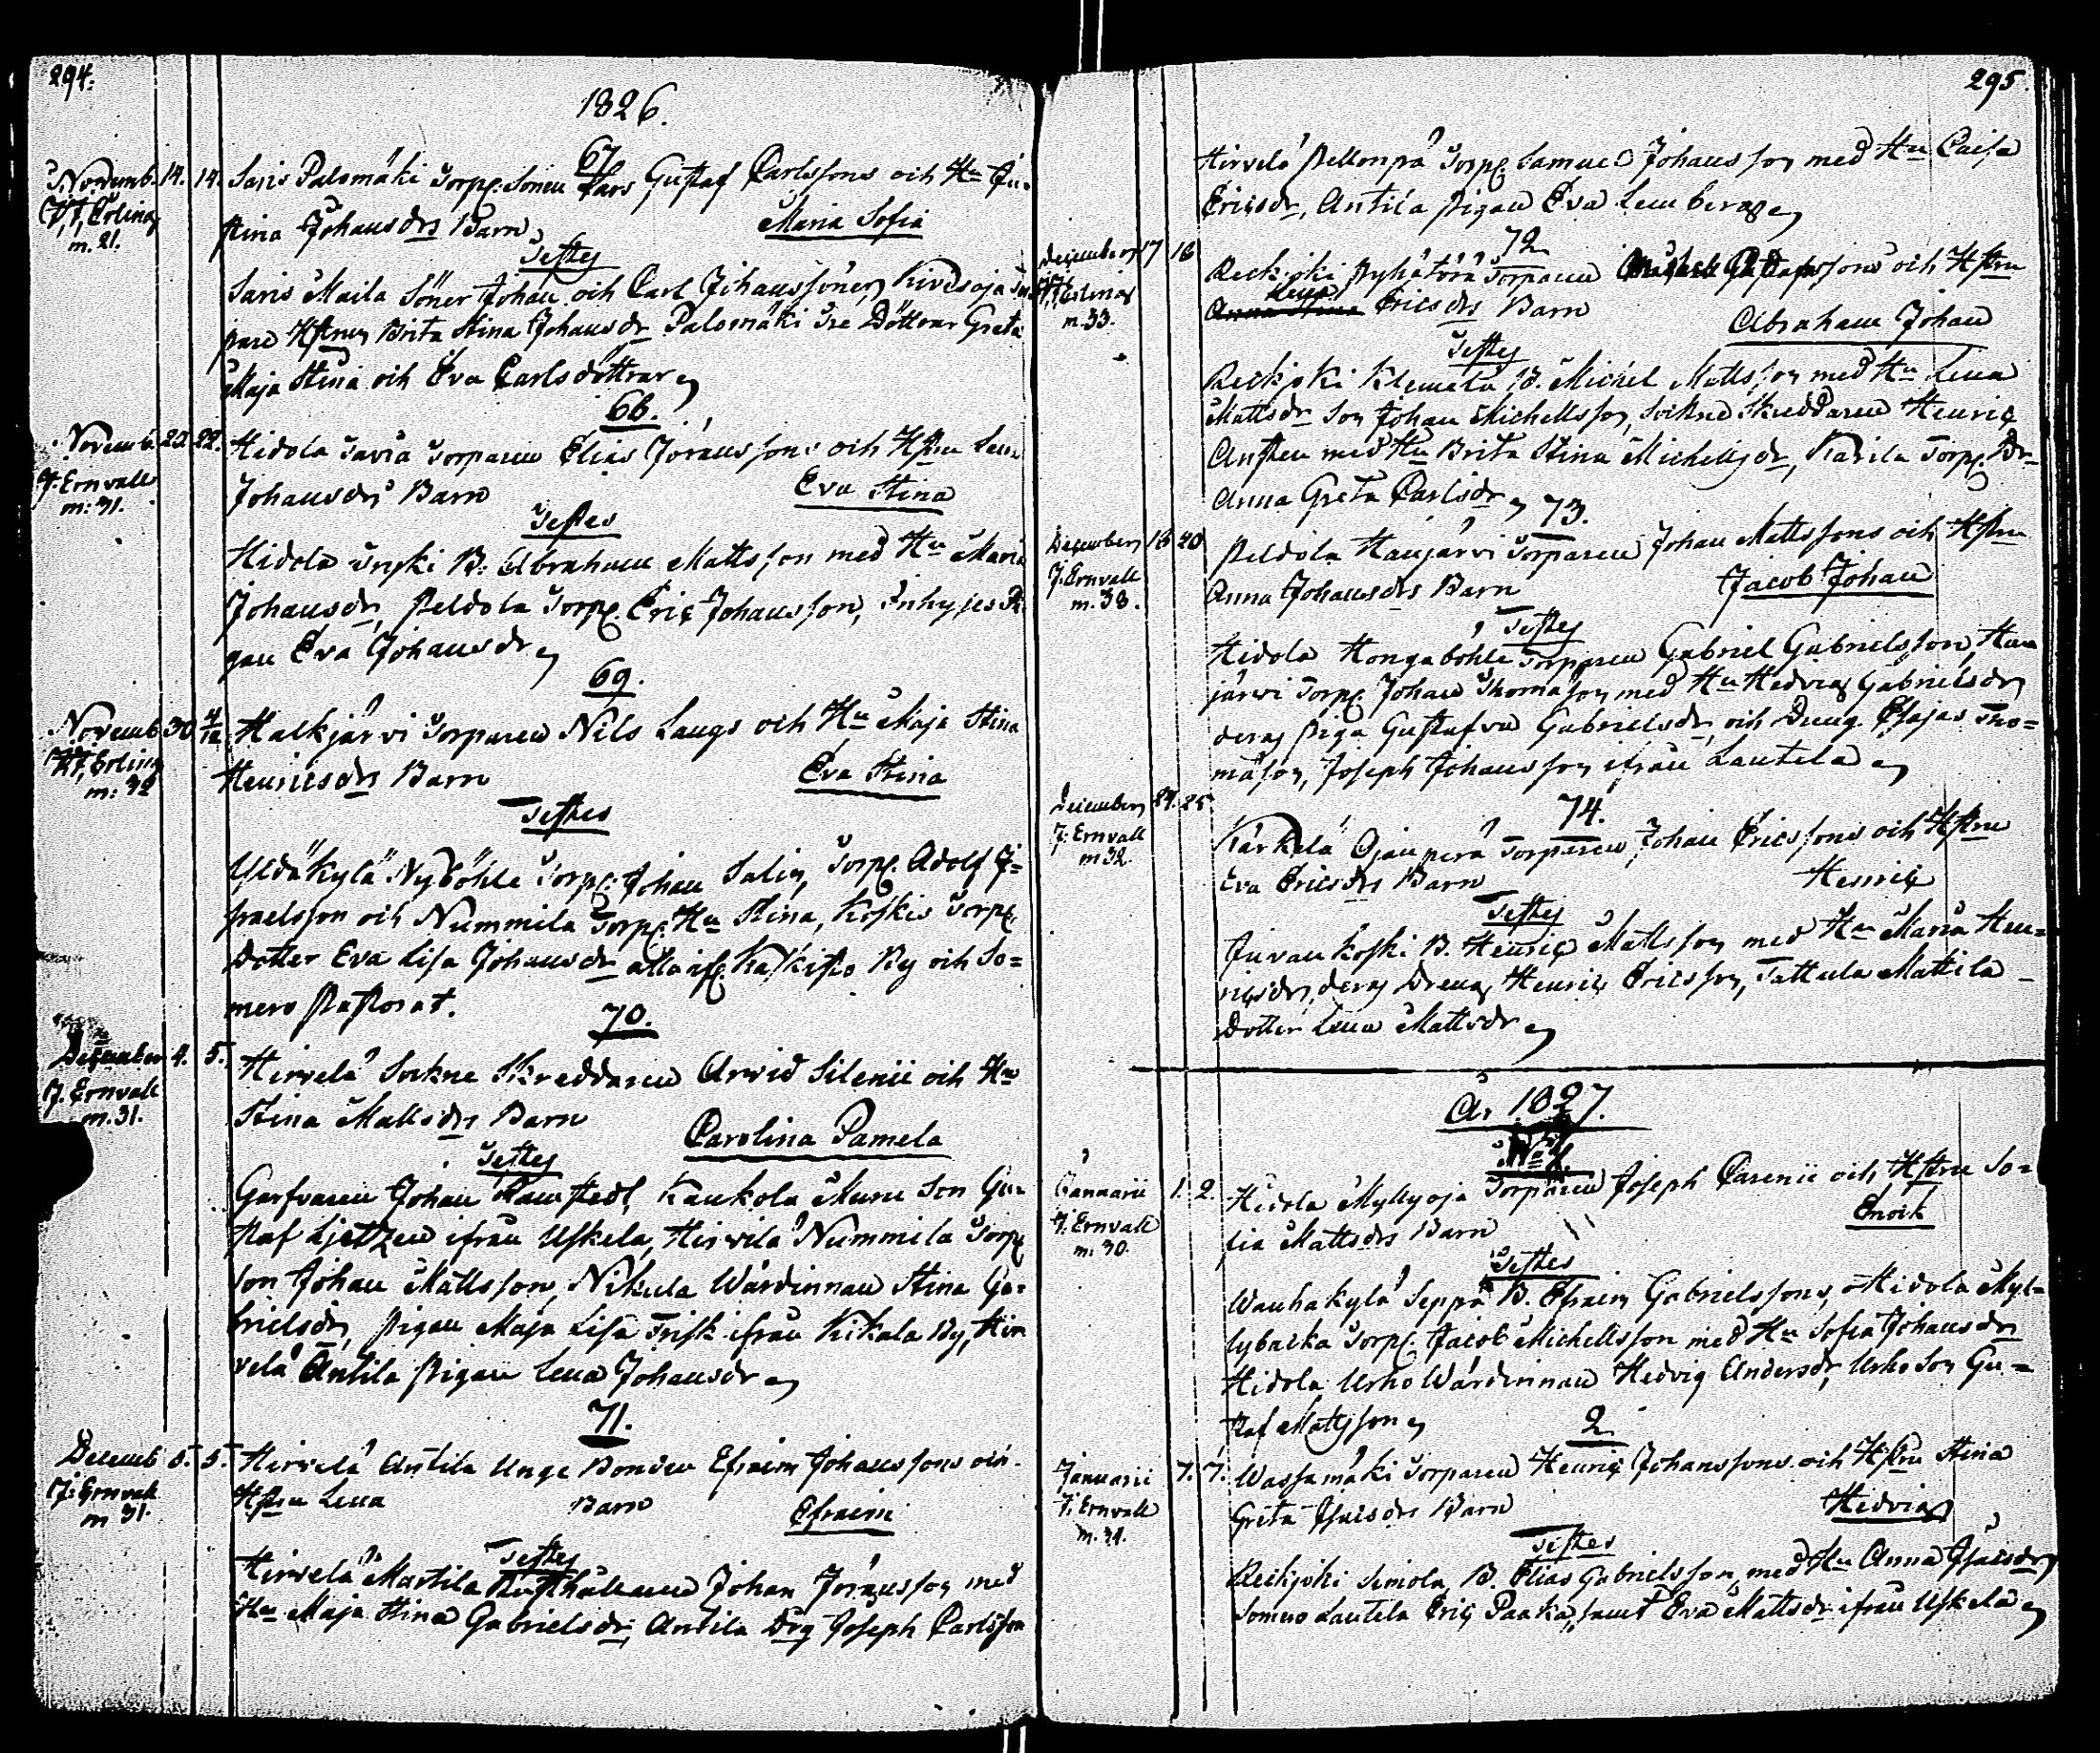 294.
1826.
67
Novemb. 14. 14. Saris Palomäki Torp. Sonen Lars Gustaf Carlssons och Hu Ju-
stina Johansdrs Barn Maria Sofia
m. 21.
Testes
Saris Maila Söner Johan och Carl Johanssöner, Kivisoja
Brita Stina Johansdr Palomäki Döttrar Greta
Maja Stina och Eva Carlsdöttrar
68.
Novemb. 22. Hidola Torparen Elias Jöranssons och Hstru Lena
J. Ernvall
m: 31.
Johansdrs Barn Eva Stina
Testes
Hidola B. Abraham Mattsson med Hu Maria
Johansdr, Peldola Torp. Eric Johansson, Inhyses Pi-
gan Eva Johansdr
69.
Novemb 30 4/12 Halkjärvi Torparen Nils Langs och Hu Maja Stina
m: 32
Henricsdrs Barn Eva Stina
Testes
Yldäkylä Nyböhle Torp. Johan Salin, Torp. Adolf I-
sraelsson och Nummila Torp. Hu Stina, Koskis Torp.
Dotter Eva Lisa Johansdr alla ifr. Koskis By och So-
mero Pastorat.
70.
December 4. 5. Hirvelä Sockne Skreddaren Arvid Silenii och Hu
J. Ernvall
m. 31.
Stina Mattsdrs Barn Carolina Pamela
Testes
Garfvaren Johan Kaukola Muru Son Gu-
staf ifrån Uskela, Hirvilä Nummila Torp.
Son Johan Mattsson, Nikula Wärdinnan Stina Ga-
brielsdr, Pigan Maja Lisa Frisk ifrån Kikala By, Hir-
velä Antila Pigan Lena Johansdr
71.
Decemb 5. 5. Hirvelä Antila Unge Bonden Efraim Johanssons och
J. Ernvall
m 31.
Hstru Lena Barn Efraim
Testes
Hirvelä Martila Rusthållaren Johan Jöransson med
Hu Maja Stina Gabrielsdr, Antila Drg Joseph Carlsson
295.
Hirvelä Pellonpä Torp. Samuel Johansson med Hu Caisa
Ericsdr, Antila Pigan Eva Lemberg
72
December 17 18 Reckjoki Torparen och Hstru
m. 33.
Lena Ericsdrs Barn Abraham Johan
Testes
Reckjoki Klemelä B. Michel Mattsson med Hu Lena
Mattsdr Son Johan Michelsson, Sockne Skreddaren Henric
med Hu Brita Stina Michelsdr, Karila Torp. Dr
Anna Greta Carlsdr
73.
December 18 20 Peldola Hanjärvi Torparen Johan Mattssons och Hstru
J. Ernvall
m. 38.
Anna Johansdrs Barn Jacob Johan
Testes
Hidola Hongaböhle Torparen Gabriel Gabrielsson, Han-
järwi Torp. Johan Thomasson med Hu Hedvig Gabrielsdr
deras Piga Gustafva Gabrielsdr, och Dreng Esajas Tho-
masson, Joseph Johansson ifrån Lautela
74.
December 24. 25 Kärkelä Ojanperä Torparen Johan Ericssons och Hstru
J. Ernvall
m 32.
Eva Ericsdrs Barn Henric
Testes
Juvankoski B. Henric Mattsson med Hu Maria Hen-
ricsdr, deras Dreng Henric Ericsson, Tattula Mattila
Dotter Lena Mattsdr
År 1827.
No 1.
Januarii 1. 2. Hidola Myllyoja Torparen Joseph Carenii och Hstru So-
J. Ernvall
m. 30.
fia Mattsdrs Barn Enock
Testes
Wanhakylä Seppä B. Efraim Gabrielssons, Hidola Myl-
lybacka Torp. Jacob Michelsson med Hu Sofia Johansdr
Hidola Urho Wärdinnan Hedvig Andersdr, Urho Son Gu-
staf Mattsson
2
Januarii 7. 7. Wassamäki Torparen Henric Johanssons och Hstru Stina
J. Ernvall
m. 34.
Greta Isacsdrs Barn Hedvig
Testes
Reckjoki Simola B. Elias Gabrielsson med Hu Anna Isacsdr
Somero Lautela Eric Paaka, samt Eva Mattsdr ifrån Uskela